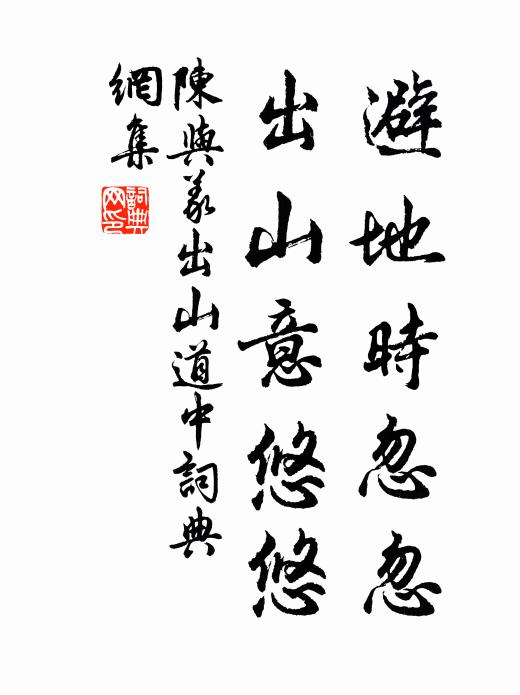 避地時忽忽
出山意悠悠
陳與義出山道中詞典
網集
詞典網印